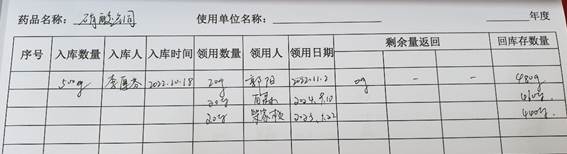 药品名称： 硝酸铜 使用单位名称： 年度
序号 入库数量 入库人 入库时间 领用数量 领用人 领用日期 剩余量返回 回库存数量
500g 2022.10.18 20g 郭阳 2022.11.2 0g - - 480g
20g 2024.9.10 460g
20g 2023.1.22 440g